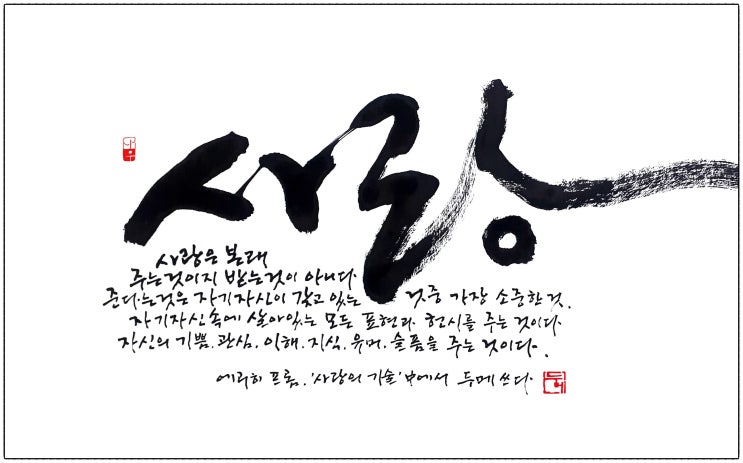 사랑
사랑은 본래
주는것이지 받는것이 아니다
준다는것은 자기자신이 갖고 있는 것중 가장 소중한것.
자기자신속에 살아있는 모든 표현과 현시를 주는 것이다
자신의 기쁨.관심.이해.지식.유머.슬픔을 주는 것이다.
에리히 프롬. '사랑의 기술'中에서 두메 쓰다
두메